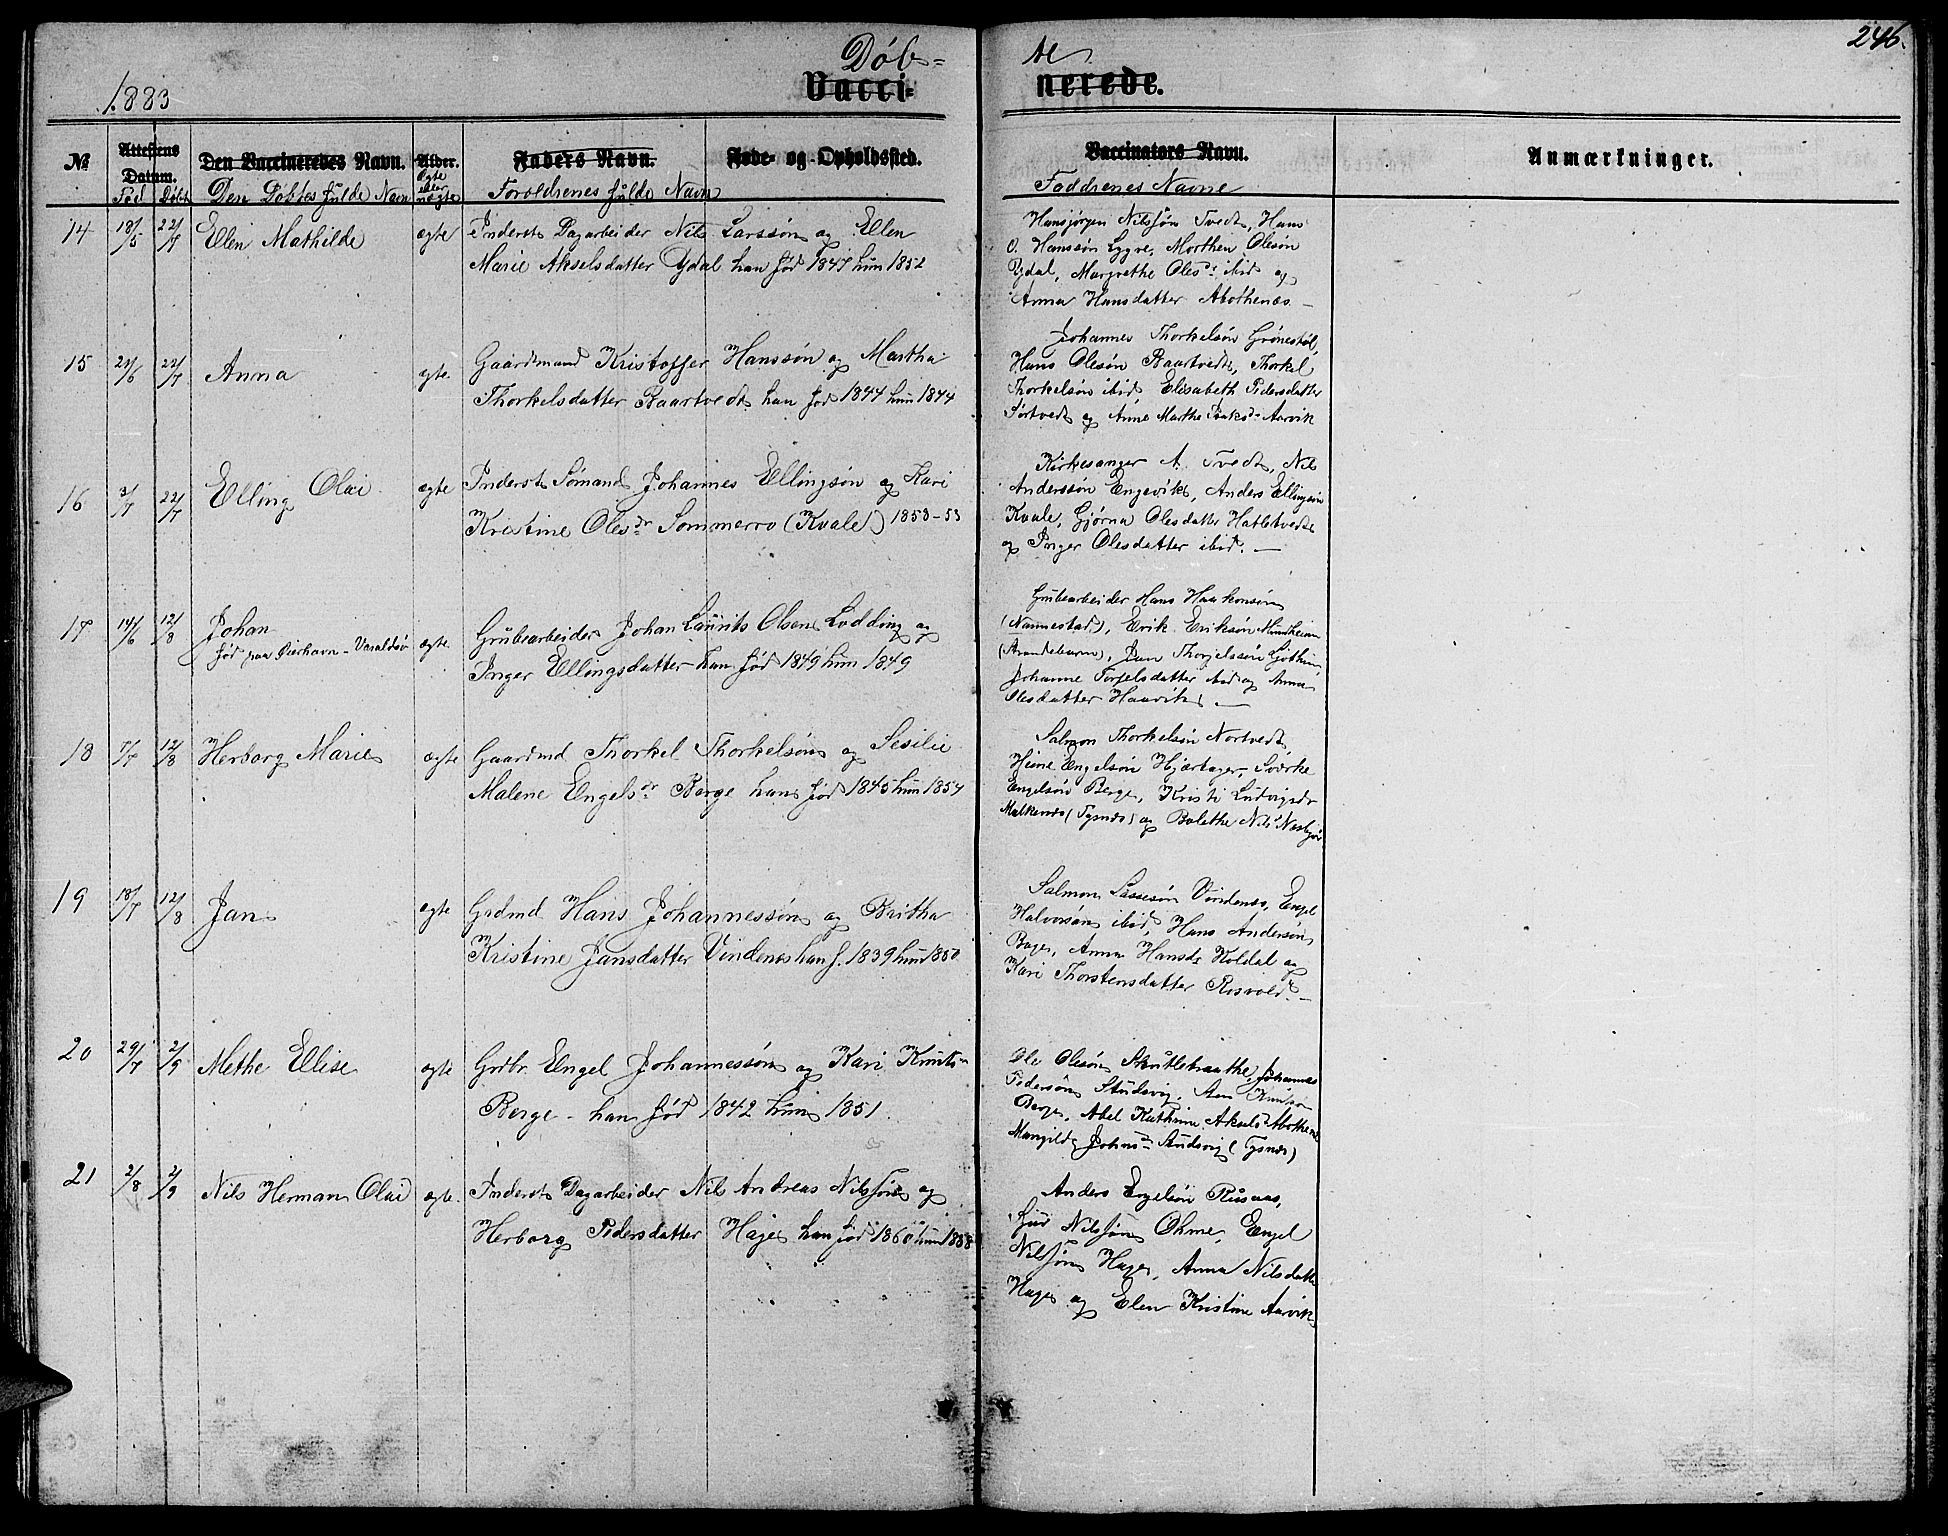 246.
1883
Døb= te
Vacci= nerede.
№ Attestens Datum. Den Vaccineredes Navn. Alder. Faders Navn. Føde- og Opholdssted. Vaccinators Navn. Anmærkninger.
Fød Døbt Den Døbtes fulde Navn Ægte eller uægte Forældrenes fulde Navn Faddrenes Navne
14 18/5 22/7 Ellen Mathilde ægte Inderst Dagarbeider Nils Larssøn og Ellen
Marie Akselsdatter Ydal han fød 1847 hun 1852
Hansjørgen Nilssøn Tvedt, Hans
O. Hanssøn Lygre, Morthen Olesøn
Ydal, Margrethe Olesdr ibid og
Anna Hansdatter Abothenæs. –
15 24/6 22/7 Anna ægte Gaardmand Kristoffer Hanssøn og Martha
Thorkelsdatter Baartvedt han fød 1844 hun 1844
Johannes Thorkelsøn Grønestøl,
Hans Olesøn Baartvedt, Thorkel
Thorkelsøn ibid, Elisabeth Pedersdatter
Sørtvedt og Anne Marthe Isaksdr Aarvik
16 3/7 22/7 Elling Olai ægte Inderst Sømand Johannes Ellingsøn og Kari
Kristine Olesdr Sommerro (Kvale) 1858-53
Kirkesanger A. Tvedt, Nils
Anderssøn Engevik, Anders Ellingsøn
Kvale, Gjørna Olesdatter Hatletvedt
og Inger Olesdatter ibid. —
17 14/6 12/8 Johan ægte Grubearbeider Johan Laurits Olsen Lødding og
fød paa Dierhavn - Varaldsø
Inger Ellingsdatter han fød 1849 hun 1849
Grubearbeider Hans Haakonsøn
(Nannestad), Erik Eriksøn Mundheim
(Strandebarm), Jan Thorjelssøn
Johanne Torjelsdatter ibid og Anna
Olesdatter Haavik. —
18 7/7 12/8 Herborg Marie ægte Gaardmd Thorkel Thorkelsøn og Sesilie
Malene Engelsdr Berge han fød 1845 hun 1854
Salmon Thorkelsøn Nortvedt
Heine Engelsøn Hjærtager, Sverke
Engelsøn Berge, Kristi Ludvigsdr
Malkenes (Tysnes) og Bolethe Nilsdr
19 18/7 12/8 Jan ægte Grdmd Hans Johannessøn og Britha
Kristine Jansdatter Vindenes han f. 1839 hun 1850
Salmon Sjursesøn Vindenes, Engel
Halvorsøn ibid, Hans Andersøn
Bage, Anna Hansdr Koldal og
Kari Thorstensdatter Rosvold. –
20 29/7 2/9 Methe Ellise ægte Grdbr. Engel Johannessøn og Kari Knutsdr
Berge - han fød 1842 hun 1851
Ole Olesøn Skutletraathe, Johannes
Pedersøn Studsvig, Knutsøn
Berge, Abel Kathrine Akselsdr Abothenæs
Mangild Johnsdr Studsvig (Tysnes)
21 2/8 2/9 Nils Herman Olai ægte. Inderst Dagarbeider Nils Andreas Nilssøn og
Herborg Pedersdatter Hage han fød 1860 hun 1858
Anders Engelsøn Rusaas,
Guv Nilssøn Ohme, Engel
Nilssøn Hage, Anna Nilsdatter
Hage og Elen Kristine Aarvik